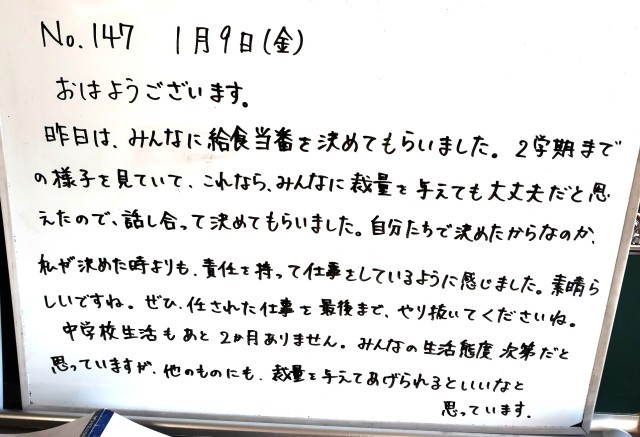 No.147 1月9日(金)
おはようございます。
昨日は、みんなに給食当番を決めてもらいました。2学期まで
の様子を見ていて、これなら、みんなに裁量を与えても大丈夫だと思
えたので、話し合って決めてもらいました。自分たちで決めたからなのか、
私が決めた時よりも、責任を持って仕事をしているように感じました。素晴ら
しいですね。ぜひ、任された仕事を最後まで、やり抜いてくださいね。
中学校生活もあと2か月ありません。みんなの生活態度次第だと
思っていますが、他のものにも、裁量を与えてあげられるといいなと
思っています。